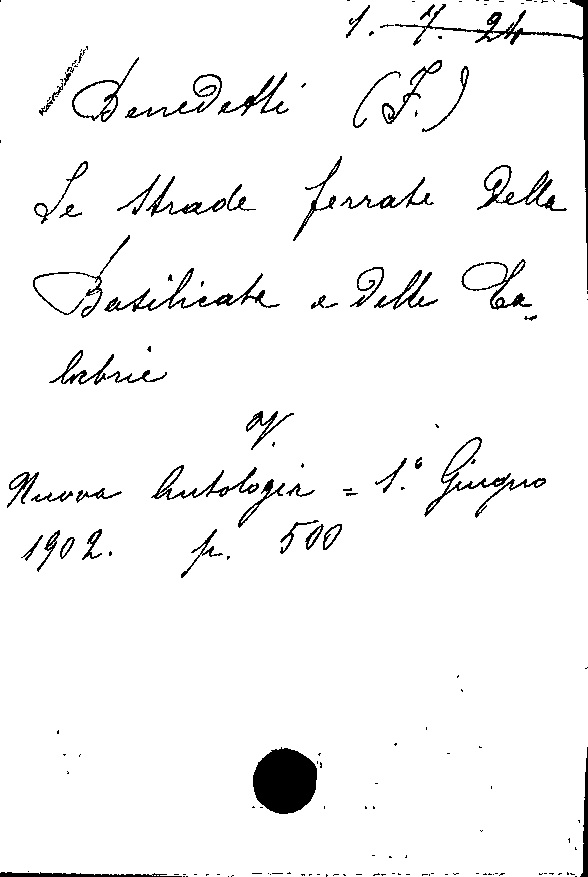 1. 7. 24
Benedetti (F.)
Le strade ferrate della
Basilicata e delle Ca-
labrie
V.
Nuova Antologia = 1.° Giugno
1902. p. 500